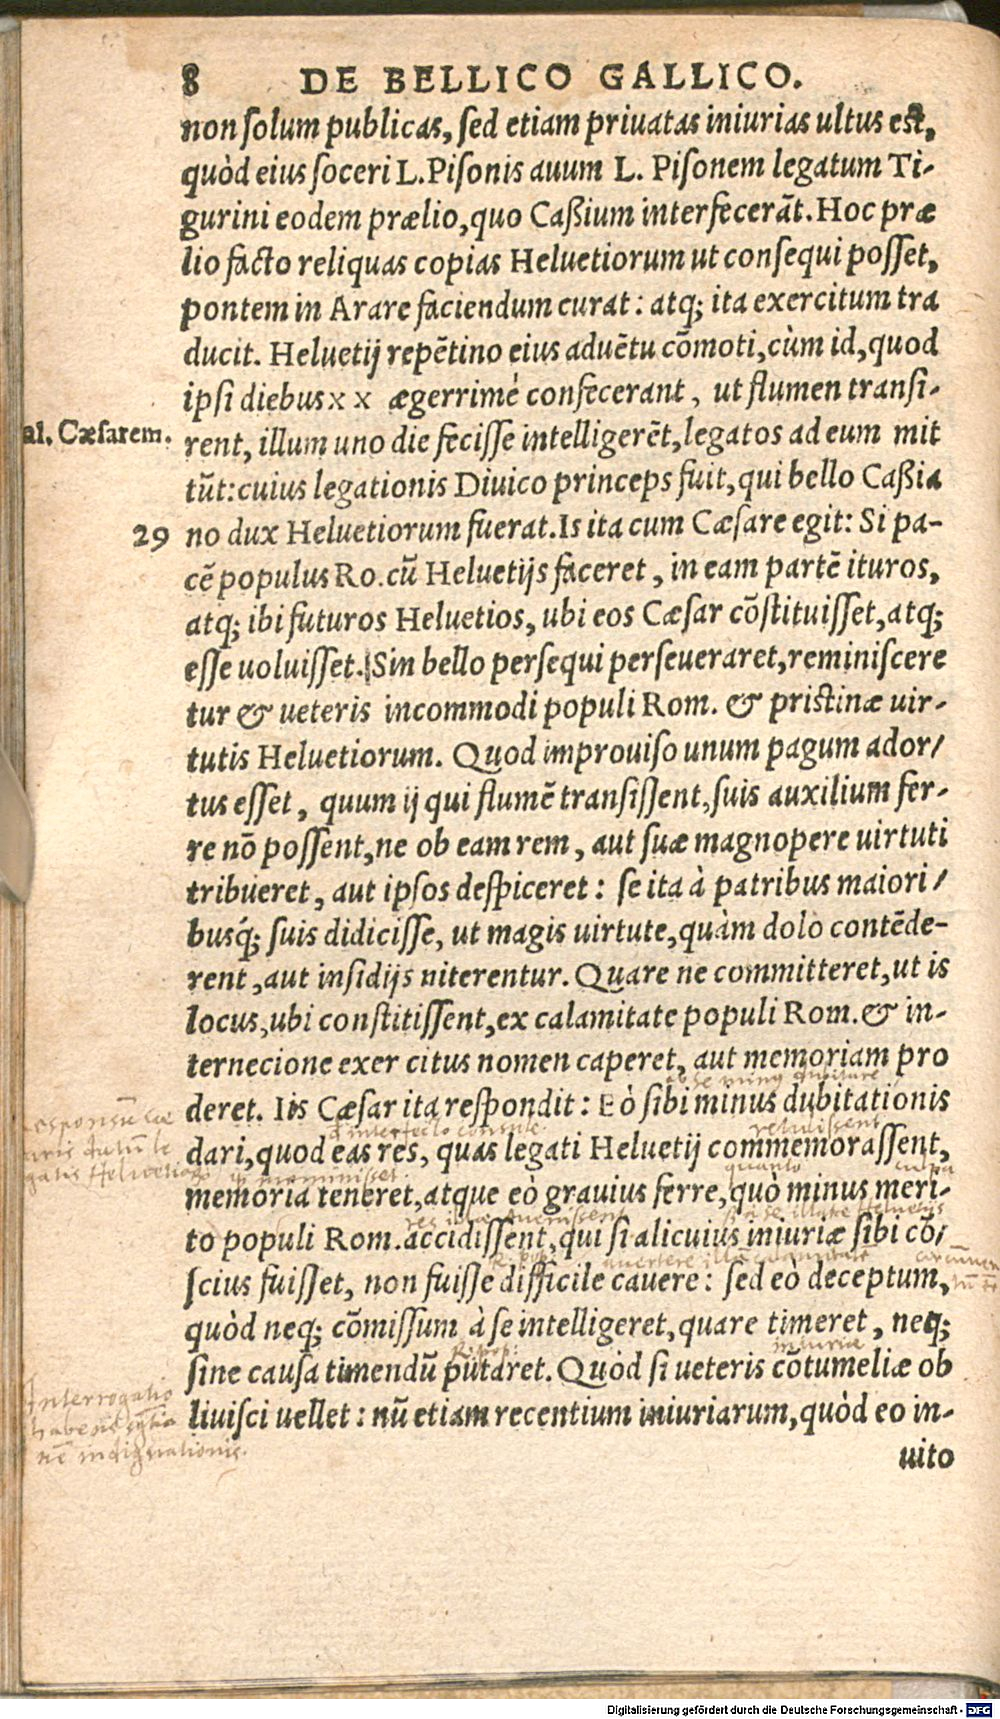 8 DE BELLICO GALLICO.
non ſolum publicas, ſed etiam priuatas iniurias ultus eſt,
quòd eius ſoceri L. Piſonis auum L. Piſonem legatum Ti-
gurini eodem prælio, quo Caßium interfecerãt. Hoc præ
lio facto reliquas copias Heluetiorum ut conſequi poſſet,
pontem in Arare faciendum curat: atq; ita exercitum tra
ducit. Heluetij repẽtino eius aduẽtu cõmoti, cùm id, quod
ipſi diebus x x ægerrimè confecerant, ut flumen tranſi-
al. Cæſarem. rent, illum uno die feciſſe intelligerẽt, legatos ad eum mit
tũt: cuius legationis Diuico princeps fuit, qui bello Caßia
29 no dux Heluetiorum fuerat. Is ita cum Cæſare egit: Si pa-
cẽ populus Ro. cũ Heluetijs faceret, in eam partẽ ituros,
atq; ibi futuros Heluetios, ubi eos Cæſar cõſtituiſſet, atq;
eſſe uoluiſſet. Sin bello perſequi perſeueraret, reminiſcere
tur & ueteris incommodi populi Rom. & priſtinæ uir-
tutis Heluetiorum. Quod improuiſo unum pagum ador/
tus eſſet, quum ij qui flumẽ tranſiſſent, ſuis auxilium fer-
re nõ poſſent, ne ob eam rem, aut ſuæ magnopere uirtuti
tribueret, aut ipſos deſpiceret: ſe ita à patribus maiori/
busq́; ſuis didiciſſe, ut magis uirtute, quàm dolo contẽde-
rent, aut inſidijs niterentur. Quare ne committeret, ut is
locus, ubi conſtitiſſent, ex calamitate populi Rom. & in-
ternecione exer citus nomen caperet, aut memoriam pro
deret. Iis Cæſar ita reſpondit: Eò ſibi minus dubitationis
dari, quod eas res, quas legati Heluetij commemoraſſent,
memoria teneret, atque eò grauius ferre, quò minus meri-
to populi Rom. accidiſſent, qui ſi alicuius iniuriæ ſibi cõ/
ſcius fuiſſet, non fuiſſe difficile cauere: ſed eò deceptum,
quòd neq; cõmiſſum à ſe intelligeret, quare timeret, neq;
iniuriæ
ſine cauſa timendũ putaret. Quòd ſi ueteris cõtumeliæ ob
Interrogatio
liuiſci uellet: nũ etiam recentium iniuriarum, quòd eo in-
nẽ indignationis.
uito
Digitalisierung gefördert durch die Deutsche Forschungsgemeinschaft - DFG